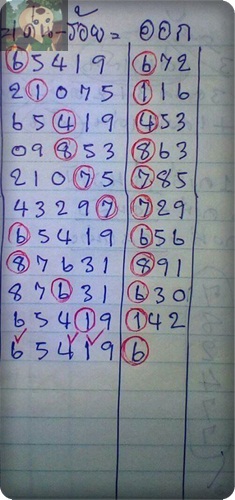 เด่น-ร้อย = ออก
65419 672
21075 116
65419 453
09853 863
21075 785
43297 729
65419 656
87631 891
87631 630
65419 142
65419 6